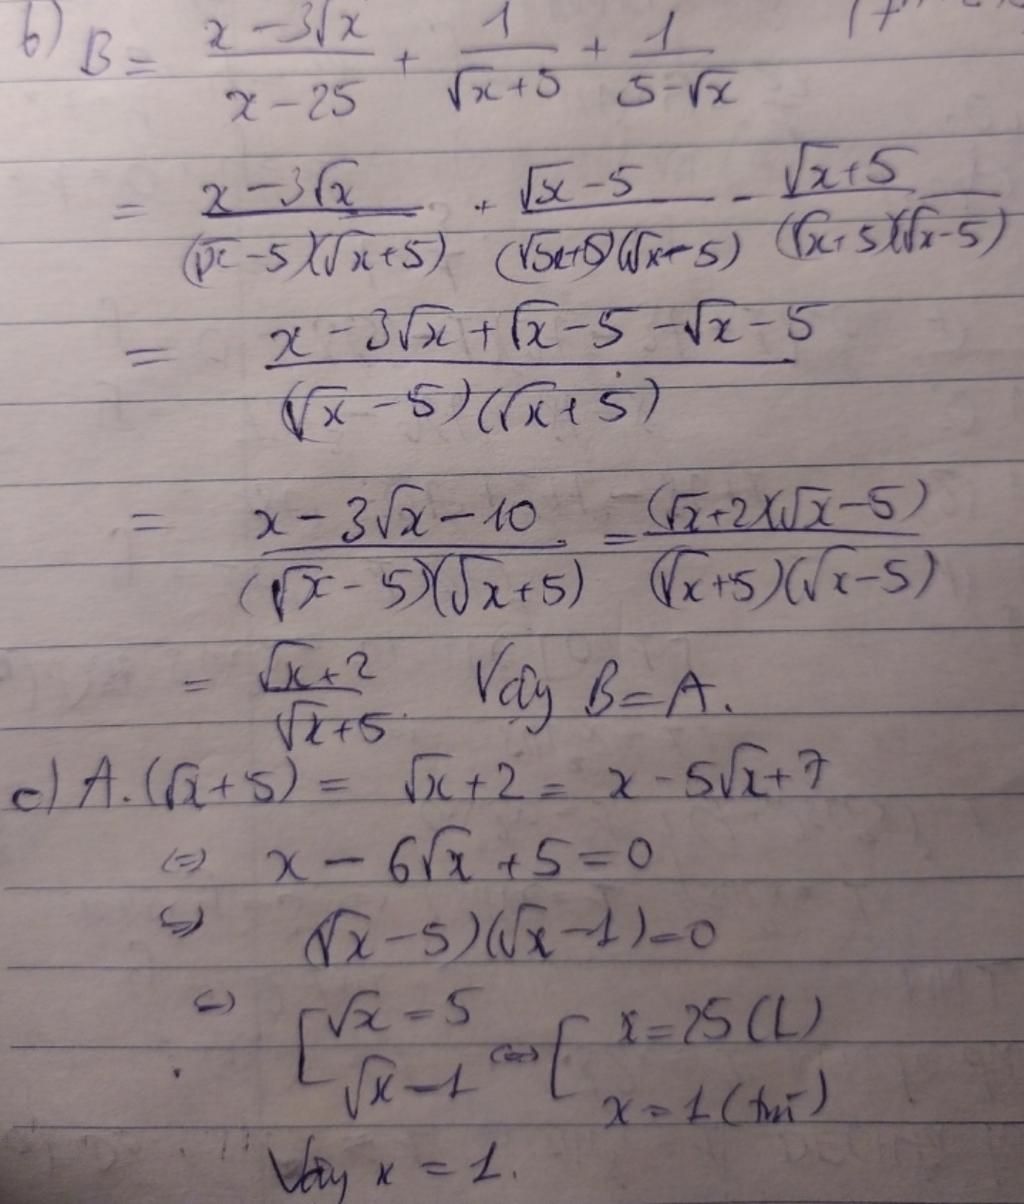 b) B = (x - 3√x)/(x - 25) + 1/(√x + 5) + 1/(5 - √x)
= (x - 3√x)/((√x - 5)(√x + 5)) + (√x - 5)/((√x + 5)(√x - 5)) - (√x + 5)/((√x + 5)(√x - 5))
= (x - 3√x + √x - 5 - √x - 5)/((√x - 5)(√x + 5))
= (x - 3√x - 10)/((√x - 5)(√x + 5)) = ((√x + 2)(√x - 5))/((√x + 5)(√x - 5))
= (√x + 2)/(√x + 5). Vậy B = A.
c) A.(√x + 5) = √x + 2 = x - 5√x + 7
(=) x - 6√x + 5 = 0
(=) (√x - 5)(√x - 1) = 0
(=) [ √x = 5 (=) [ x = 25 (L)
√x = 1 x = 1 (tm)
Vậy x = 1.